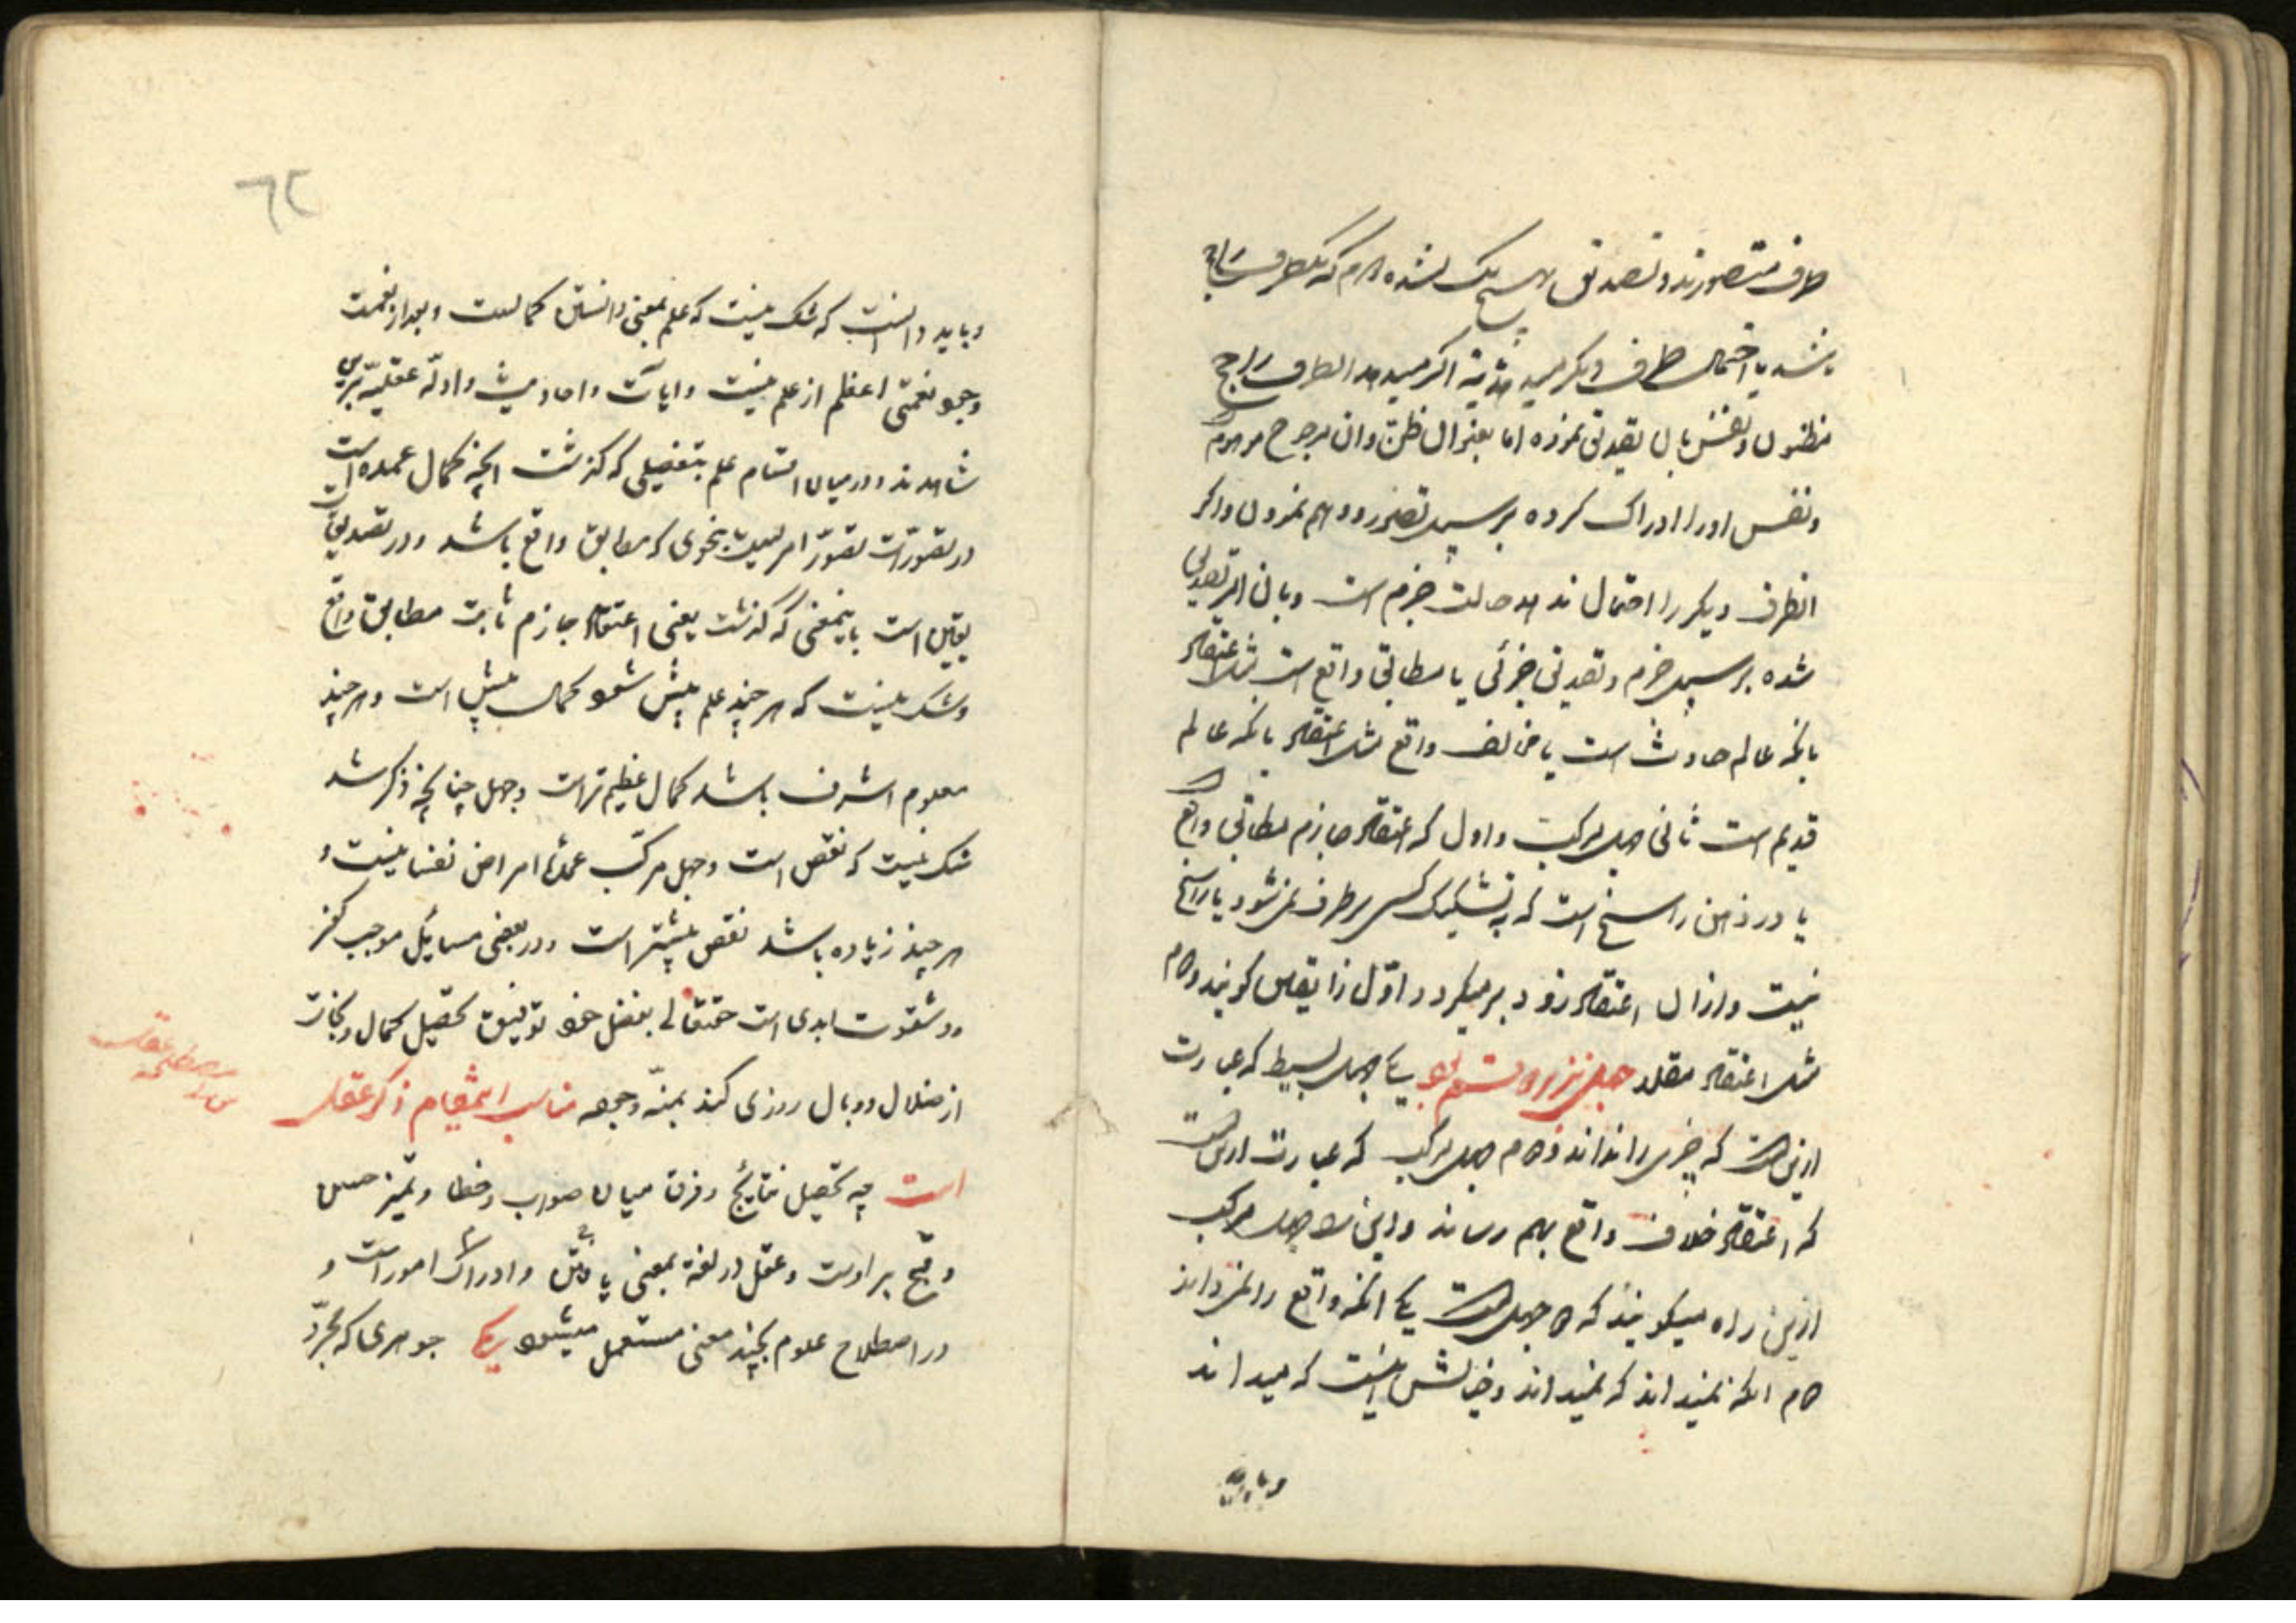 طرف متصورند و تصدیق بهیچ یک نشده و هرگاه یکطرف راجح
باشد یا احتمال طرف دیگر میدهد یا نه اگر میدهد انطرف راجح
مظنون و نفس بان تصدیق نموده اما بعنوان ظن و ان مرجوح موهوم
و نفس اورا ادراک کرده بر سبیل تصور و وهم نمودن و اگر
انطرف دیگر را احتمال ندهد حالت جزم است و بان امر تصدیق
شده بر سبیل جزم و تصدیق جزئی یا مطابق واقع است مثل اعتقاد
بانکه عالم حادث است یا مخالف واقع مثل اعتقاد بانکه عالم
قدیم است ثانی جهل مرکبت و اول که اعتقاد جازم مطابق واقع
یا در ذهن راسخ است که به تشکیک کسی برطرف نمیشود یا راسخ
نیست و از ان اعتقاد زود برمیگردد اول را یقین گویند و دوم
مثل اعتقاد مقلد جهل نیز بر دو قسم بود یکی جهل بسیط که عبارت
ازینست که چیزی را نداند و دوم جهل مرکب که عبارت ازینست
که اعتقاد خلاف واقع بهم رساند و این را جهل مرکب
ازین راه میگویند که دو جهلست یکی انکه واقع را نمیداند
دوم انکه نمیداند که نمیداند و خیالش اینست که میداند
و باید
٦٢
و باید دانست که شک نیست که علم بمعنی دانستن کمالست و بعد از نعمت
وجود نعمتی اعظم از علم نیست و ایات و احادیث و ادلّه عقلیّه برین
شاهدند و در میان اقسام علم بتفصیلی که گذشت انچه کمال عمده است
در تصوّرات تصوّر امریست بنحوی که مطابق واقع باشد و در تصدیقات
یقین است باینمعنی که گذشت یعنی اعتقاد جازم ثابت مطابق واقع
و شک نیست که هر چند علم بیش شود کمال بیش است و هر چند
معلوم اشرف باشد کمال عظیم تر است و جهل چنانچه ذکر شد
شک نیست که نقص است و جهل مرکّب عمدهٔ امراض نفسانیست و
هر چند زیاده باشد نقص بیشتر است و در بعضی مسائل موجب کفر
و شقوت ابدی است حقتعالی بفضل خود توفیق تحصیل کمال و نجات
از ضلال و وبال روزی کند بمنّه وجوده مناسب اینمقام ذکر عقل
است چه تحصیل نتایج و فرق میان صواب و خطا و تمیز حسن
و قبح بر اوست و عقل در لغة بمعنی یافتن و ادراک امور است و
در اصطلاح علوم بچند معنی مستعمل میشود یکی جوهری که مجرّد